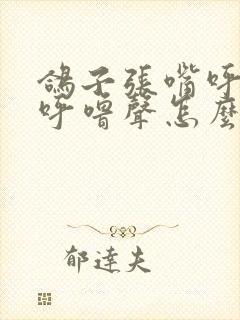 鴿子張嘴呼
呼嚕聲怎麼
郁達夫